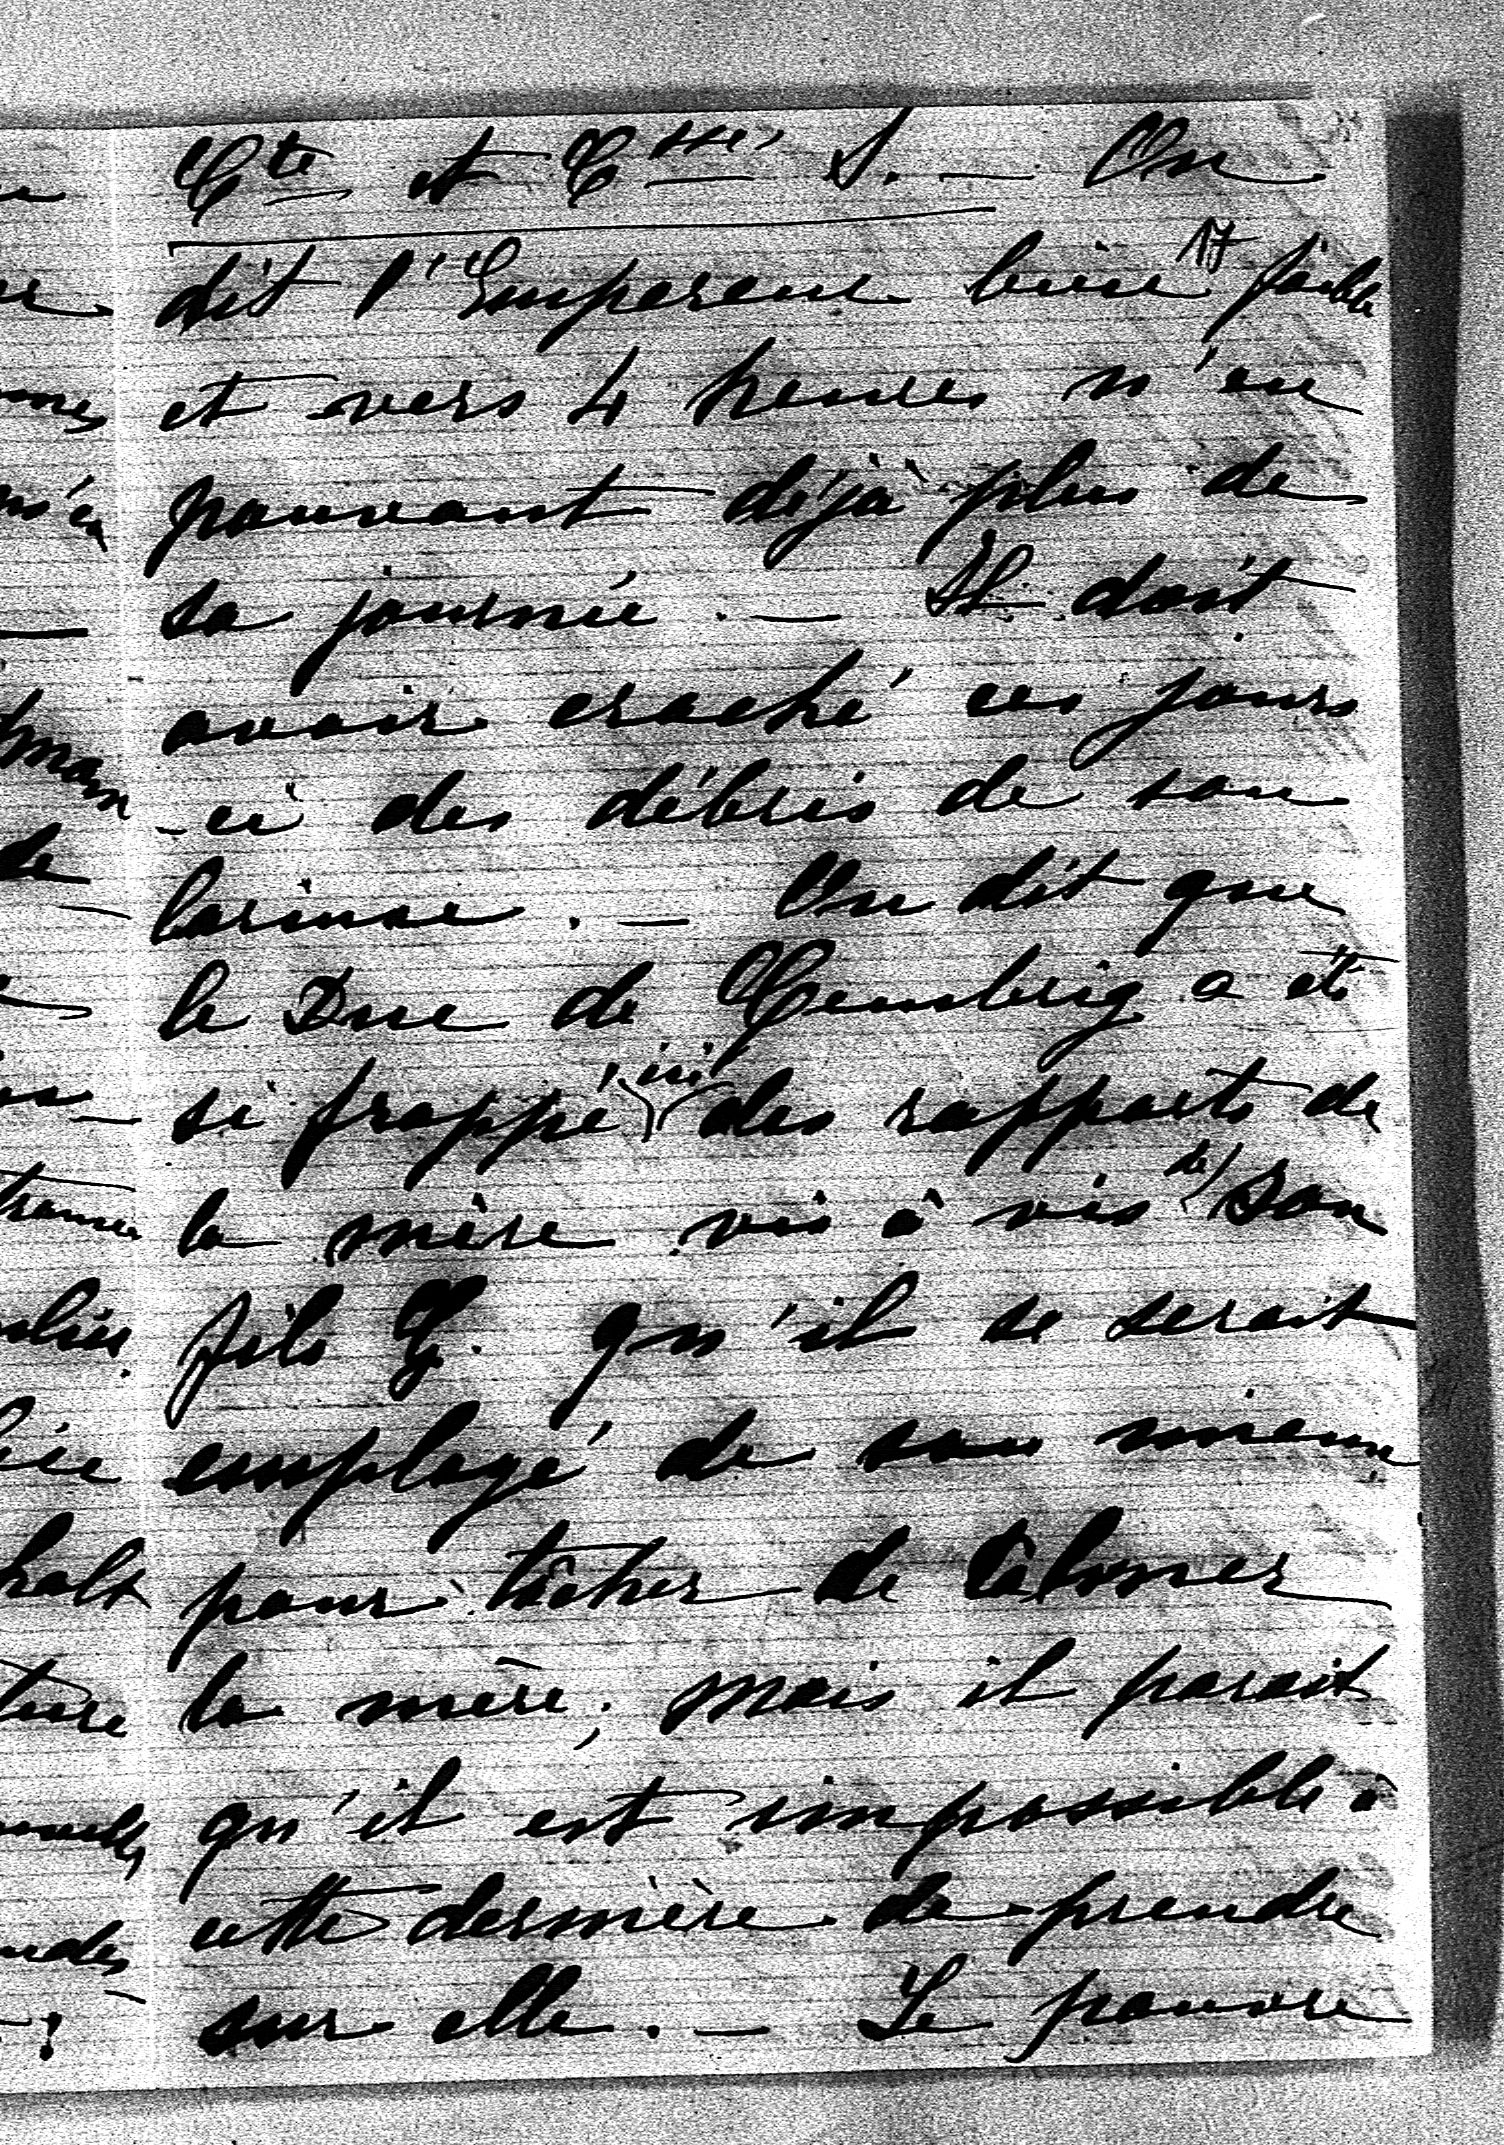 Cte et Ctsse S. — On
dit l'Empereur bien faible
17
et vers 4 heures n'en
pouvant déjà plus de
sa journée. — Il doit
avoir craché ces jours
-ci des débris de son
larinxe. — On dit que
le Duc de Cumbrig a été
si frappé ici des rapports de
la mère vis à vis de son
fils G. qu'il se serait
employé de son mieux
pour tâcher de calmer
la mère; mais il parait
qu'il est impossible à
cette dernière de prendre
sur elle. — Le pauvre